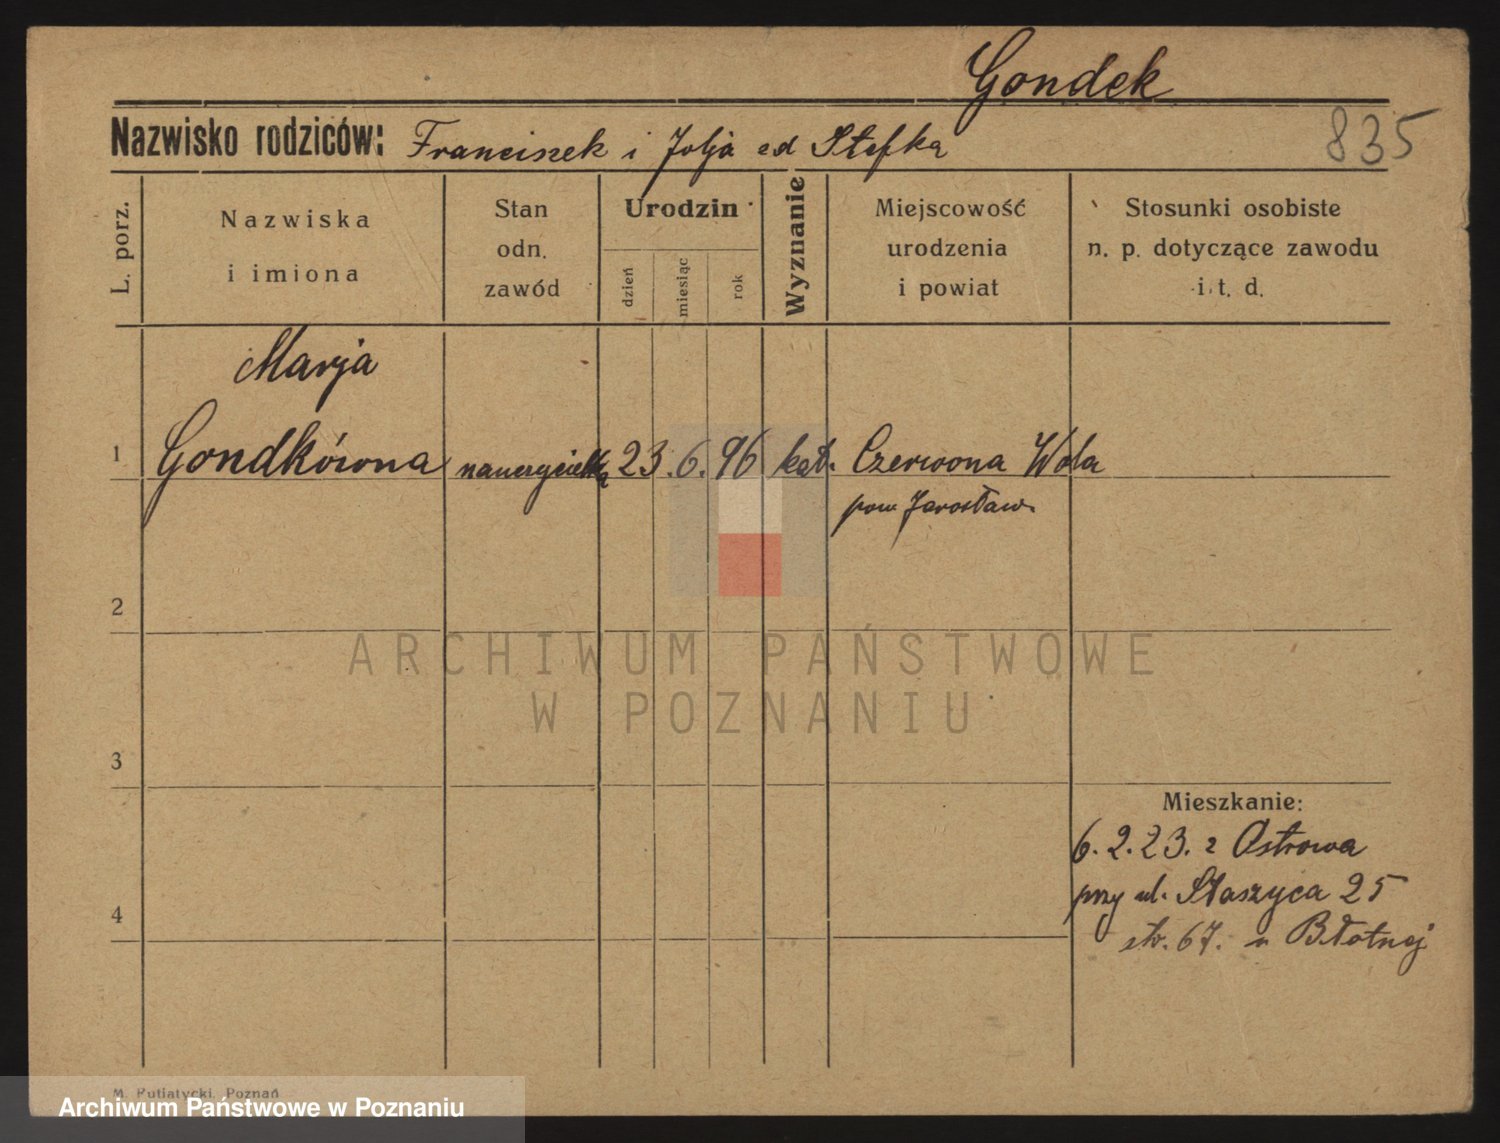 Gondek
Nazwisko rodziców: Franciszek i Julja
835
L. porz.
Nazwiska
i imiona
Stan
odn.
zawód
Urodzin
dzień
miesiąc
rok
Wyznanie
Miejscowość
urodzenia
i powiat
Stosunki osobiste
n. p. dotyczące zawodu
i t. d.
Marja
1 Gondkówna nauczycielka 23. 6. 96 kat. Czerwona Wola
pow Jarosław.
2
ARCHIWUM PAŃSTWOWE
W POZNANIU
3
Mieszkanie:
6. 2. 23. z Ostrowa
przy ul. Staszyca 25
4
str. 67. u Błotnej
M. Putiatycki, Poznań
Archiwum Państwowe w Poznaniu